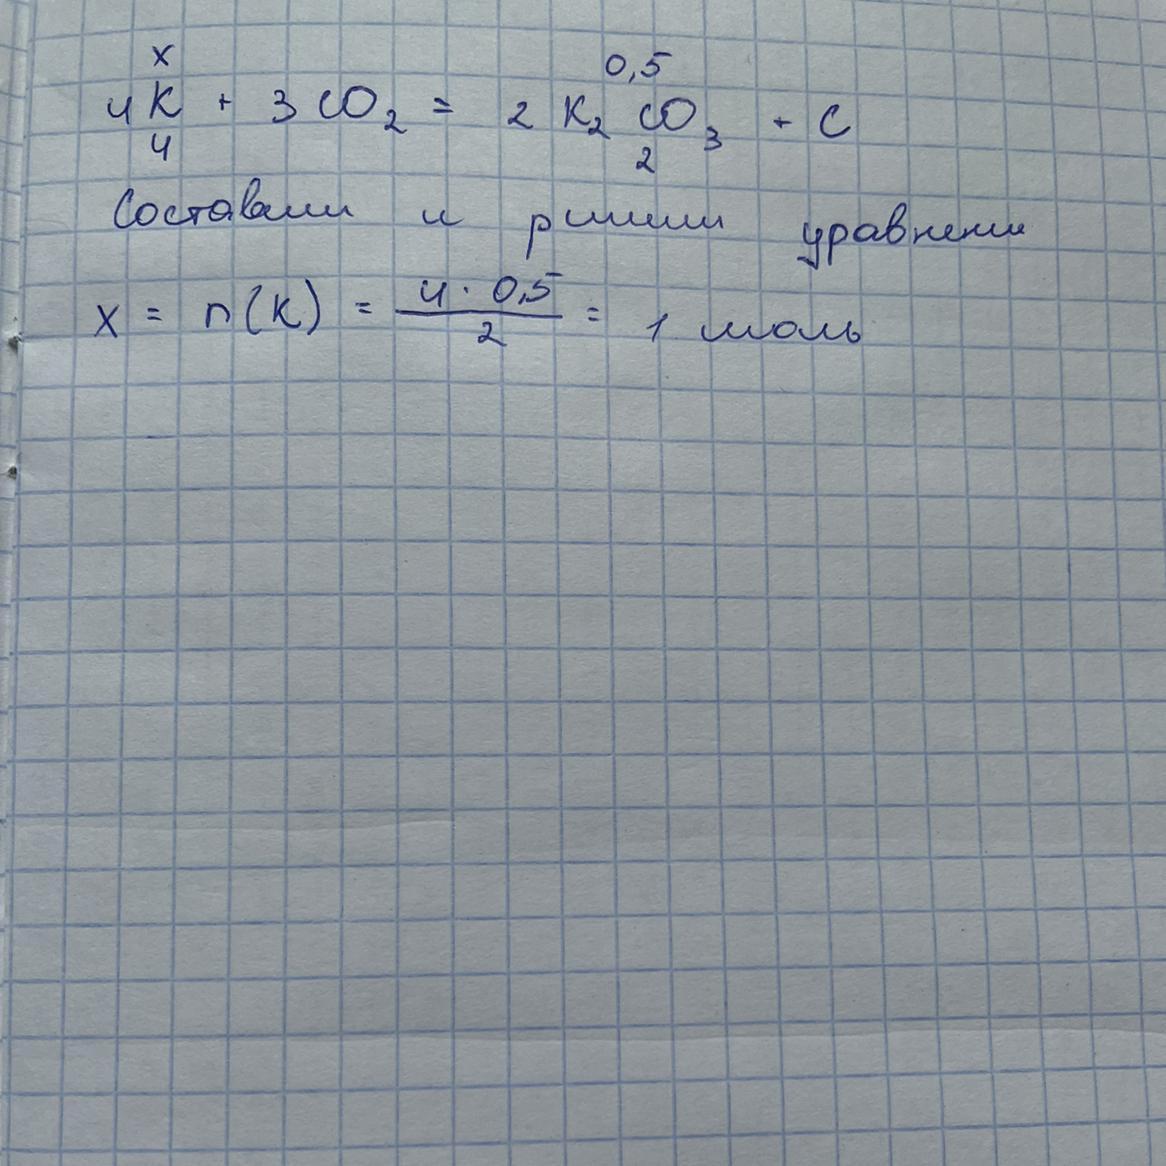 x 0,5
4K + 3CO₂ = 2K₂CO₃ + C
4 2
Составим и решим уравнение
x = n(K) = (4 · 0,5)/2 = 1 моль